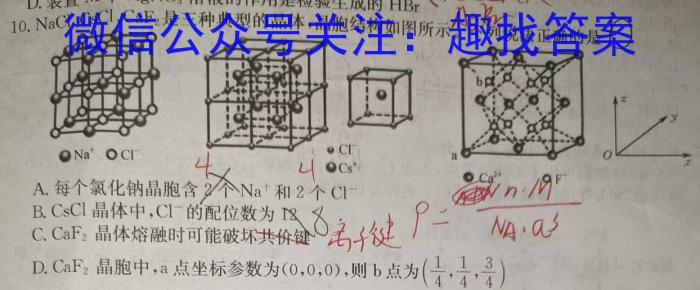 D. 装置
溶液的作用是检验生成的 HBr
10. NaCl、CsCl、CaF₂ 是三种典型的晶体,晶胞结构如图所示
微信公众号关注:趣找答案
Na⁺ Cl⁻
Cl⁻
Cs⁺
a
b
Ca²⁺ F⁻
z
y
O
x
4
4
A. 每个氯化钠晶胞含 2 个 Na⁺ 和 2 个 Cl⁻
B. CsCl 晶体中,Cl⁻ 的配位数为 12 8
C. CaF₂ 晶体熔融时可能破坏共价键 离子键
ρ = n·M / NA·a³
D. CaF₂ 晶胞中,a 点坐标参数为(0,0,0),则 b 点为(1/4,1/4,3/4)